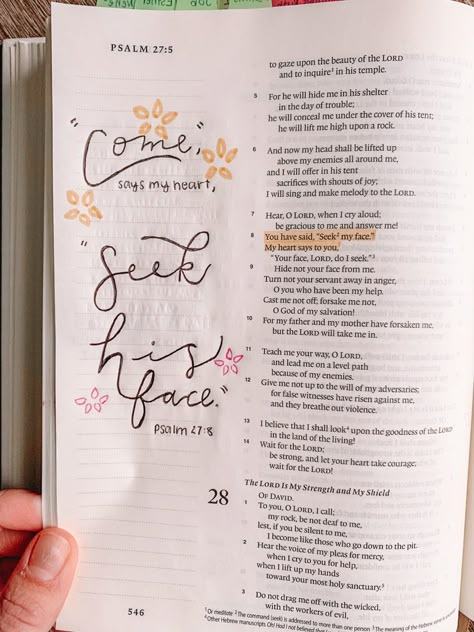 JOB
PSALM 27:5
"Come,"
says my heart,
"seek
his
face."
psalm 27:8
546
to gaze upon the beauty of the LORD
and to inquire¹ in his temple.
5 For he will hide me in his shelter
in the day of trouble;
he will conceal me under the cover of his tent;
he will lift me high upon a rock.
6 And now my head shall be lifted up
above my enemies all around me,
and I will offer in his tent
sacrifices with shouts of joy;
I will sing and make melody to the LORD.
7 Hear, O LORD, when I cry aloud;
be gracious to me and answer me!
8 You have said, "Seek² my face."
My heart says to you,
"Your face, LORD, do I seek."³
9 Hide not your face from me.
Turn not your servant away in anger,
O you who have been my help.
Cast me not off; forsake me not,
O God of my salvation!
10 For my father and my mother have forsaken me,
but the LORD will take me in.
11 Teach me your way, O LORD,
and lead me on a level path
because of my enemies.
12 Give me not up to the will of my adversaries;
for false witnesses have risen against me,
and they breathe out violence.
13 I believe that I shall look⁴ upon the goodness of the LORD
in the land of the living!
14 Wait for the LORD;
be strong, and let your heart take courage;
wait for the LORD!
The LORD Is My Strength and My Shield
28 OF DAVID.
1 To you, O LORD, I call;
my rock, be not deaf to me,
lest, if you be silent to me,
I become like those who go down to the pit.
2 Hear the voice of my pleas for mercy,
when I cry to you for help,
when I lift up my hands
toward your most holy sanctuary.⁵
3 Do not drag me off with the wicked,
with the workers of evil,
¹ Or meditate ² The command (seek) is addressed to more than one person ³ The meaning of the Hebrew verse is
⁴ Other Hebrew manuscripts Oh! Had I not believed that I